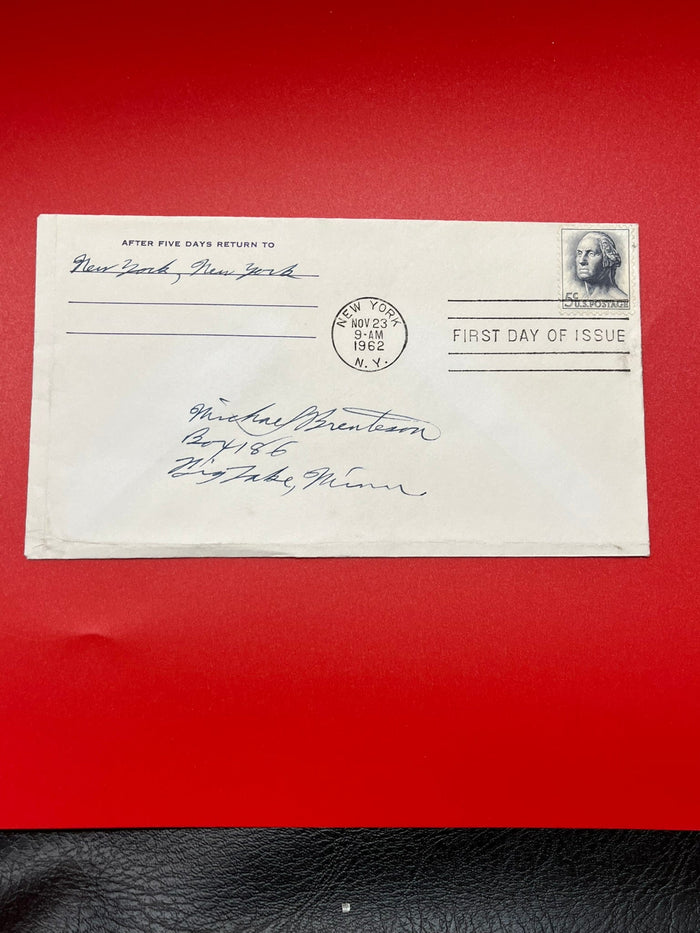 AFTER FIVE DAYS RETURN TO
New York, New York
5¢
U.S. POSTAGE
NEW YORK
NOV 23
9-AM
1962
N.Y.
FIRST DAY OF ISSUE
Michael Brenteson
Box 186
Big Lake, Minn.